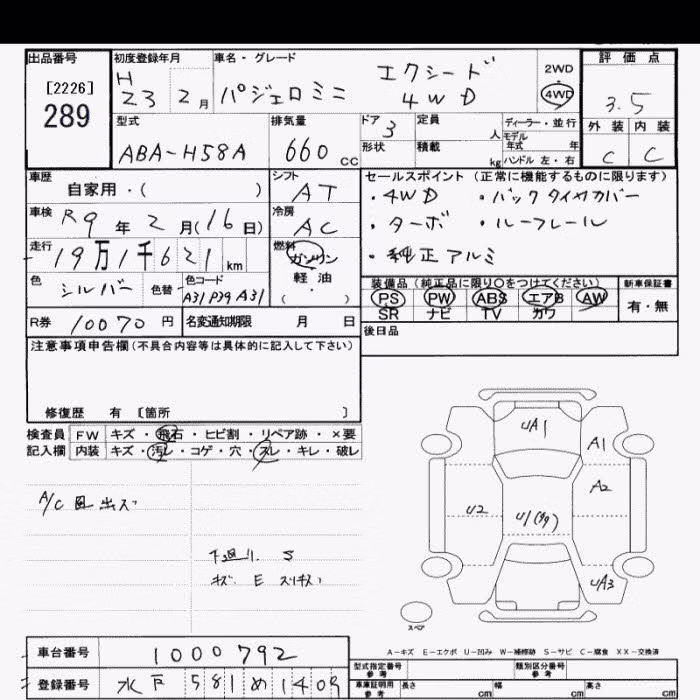 出品番号
[2226]
289
初度登録年月
H 23 2月
車名・グレード
パジェロミニ
エクシード
4WD
2WD
4WD
評価点
3.5
型式
ABA-H58A
排気量
660 cc
ドア
3
形状
定員
人
積載
kg
ディーラー・並行
モデル年式 年
ハンドル 左・右
外装 内装
C C
車歴
自家用・( )
シフト
AT
車検 R9年2月(16日)
冷房
AC
走行 19万1千621km
燃料
ガソリン
軽油
・( )
色 シルバー 色替
色コード
A31 P39 A31
セールスポイント(正常に機能するものに限ります)
・4WD ・バックタイヤカバー
・ターボ ・ルーフレール
・純正アルミ
装備品(純正品に限り〇をつけてください)
PS PW ABS エアB AW
SR ナビ TV カワ
新車保証書
有・無
R券 10070円
名変通知期限 月 日
後日品
注意事項申告欄(不具合内容等は具体的に記入して下さい)
修復歴 有 〔箇所 〕
検査員記入欄
FW キズ・飛石・ヒビ割・リペア跡・×要
内装 キズ・汚レ・コゲ・穴・スレ・キレ・破レ
A/C 風出ズ
下廻リ S
キズ E
UA1
A1
A2
U2
UA3
スペア
A-キズ E-エクボ U-凹み W-補修跡 S-サビ C-腐食 XX-交換済
車台番号 1000792
登録番号 水戸 581 め 1409
型式指定番号
参考
類別区分番号
参考
車庫証明用
参考
長さ cm
幅 cm
高さ cm